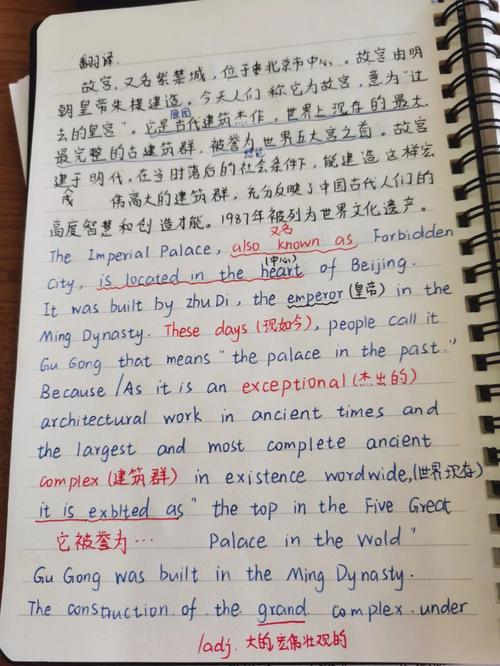 翻译.
故宫,又名紫禁城,位于北京市中心。故宫由明
朝皇帝朱棣建造。今天人们称它为故宫,意为“过
去的皇宫”。它是古代建筑杰作,世界上现存的最大
原因
最完整的古建筑群,被誉为世界五大宫之首。故宫
结论
建于明代。在当时落后的社会条件下,能建造这样宏
伟高大的建筑群,充分反映了中国古代人们的
高度智慧和创造才能。1987年被列为世界文化遗产。
又名
The Imperial Palace, also known as Forbidden
(中心)
City, is located in the heart of Beijing.
It was built by zhu Di, the emperor (皇帝) in the
Ming Dynasty. These days (现如今), people call it
Gu Gong that means "the palace in the past."
Because /As it is an exceptional (杰出的)
architectural work in ancient times and
the largest and most complete ancient
complex (建筑群) in existence wordwide, (世界现存)
it is exblted as " the top in the Five Great
它被誉为… Palace in the Wold "
Gu Gong was built in the Ming Dynasty.
The construction of the grand complex under
/adj. 大的,宏伟壮观的